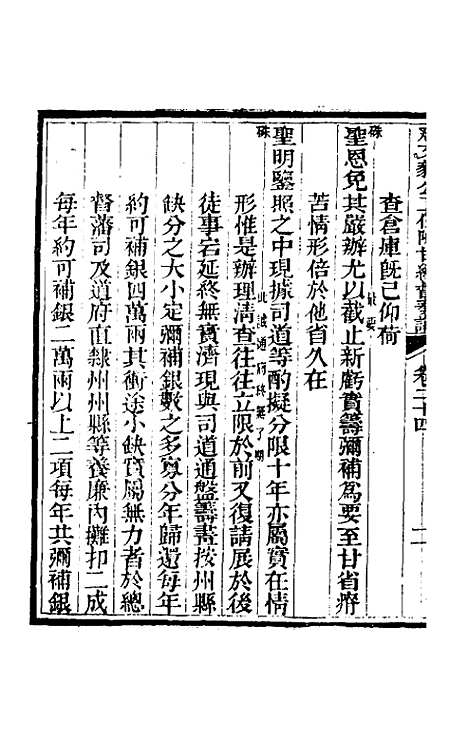 卷二十四
查倉庫既已仰荷
硃
聖恩免其嚴辦尤以截止新虧實籌彌補為要至甘省瘠
最要
苦情形倍於他省久在
硃
聖明鑒照之中現據司道等酌擬分限十年亦屬實在情
形惟是辦理清查往往立限於前又復請展於後
此誠通病殊屬了期
徒事宕延終無實濟現與司道通盤籌畫按州縣
缺分之大小定彌補銀數之多寡分年歸還每年
約可補銀四萬兩其衝途小缺實屬無力者於總
督藩司及道府直隸州州縣等養廉內攤扣二成
每年約可補銀二萬兩以上二項每年共彌補銀